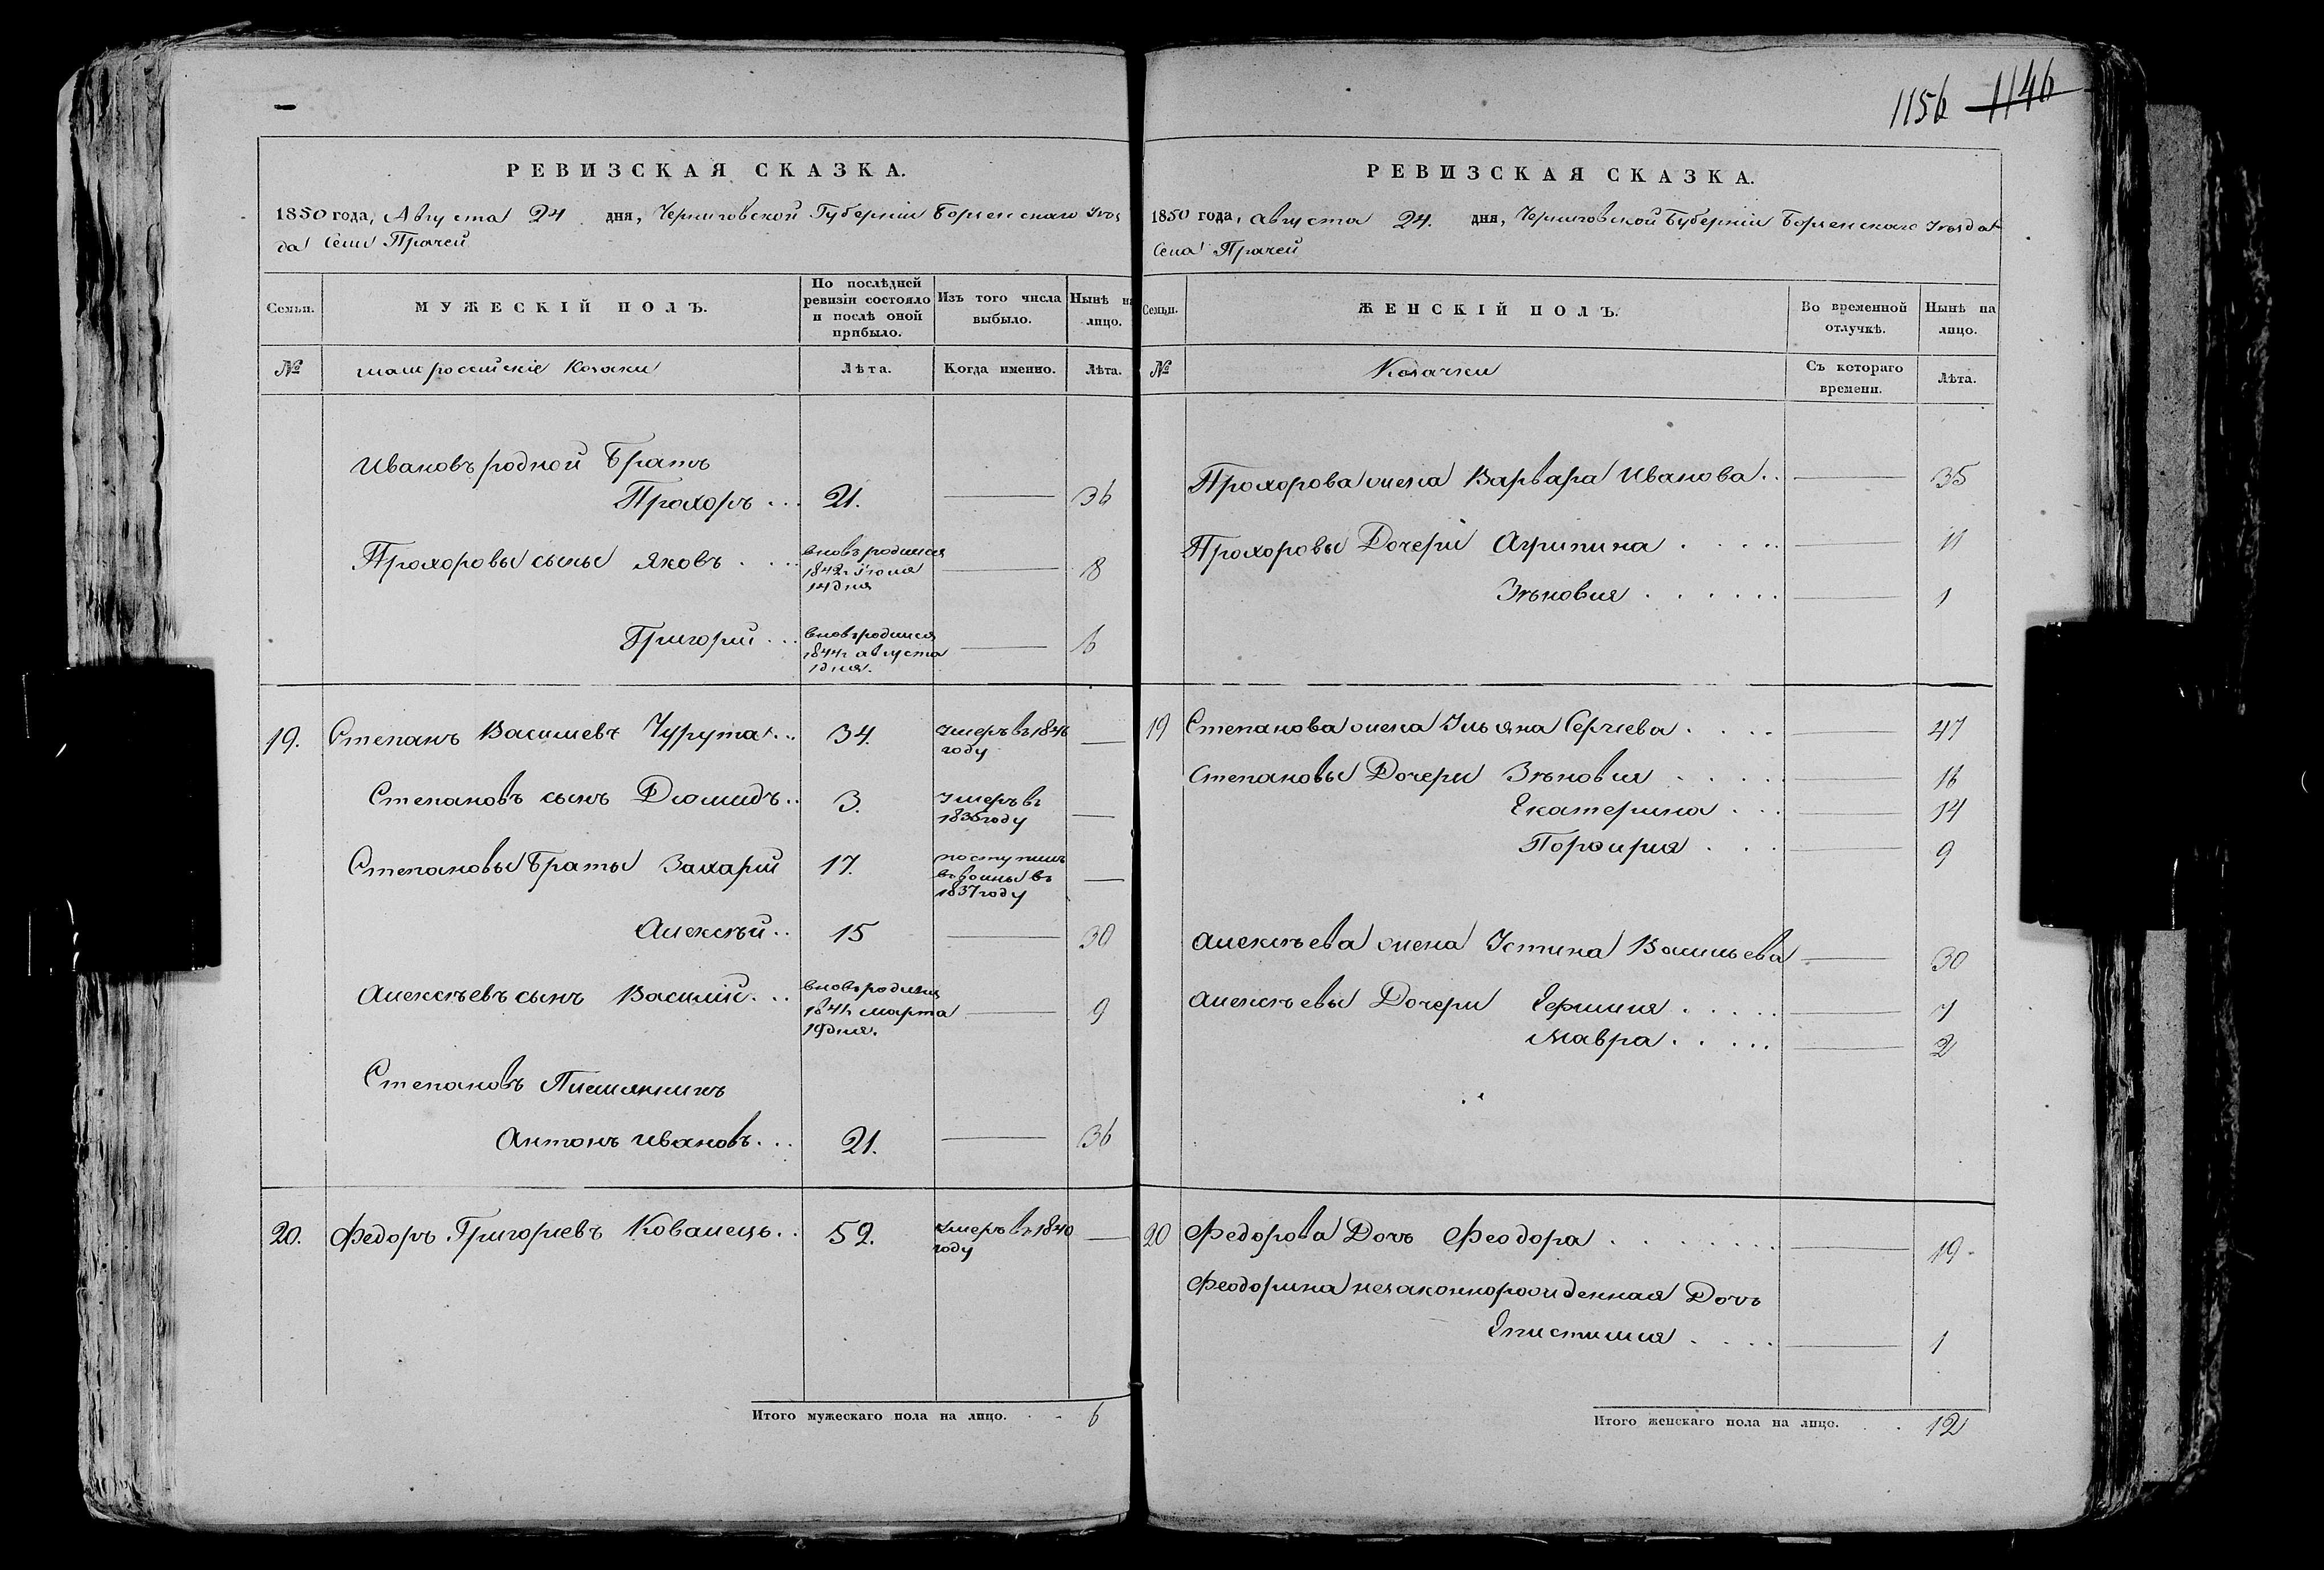 1156 1146
РЕВИЗСКАЯ СКАЗКА.
1850 года, Августа 24 дня, Черниговской Губерніи Борзенскаго Уѣз
да Села Прачей
Семьи. МУЖЕСКІЙ ПОЛЪ. По послѣдней ревизіи состояло и послѣ оной прибыло. Изъ того числа выбыло. Нынѣ на лицо.
№ малороссійскіе Козаки Лѣта. Когда именно. Лѣта.
Ивановъ родной Братъ
Прохоръ ... 21. 36
Прохоровы сыны Яковъ вновь родился 1842 г. Іюля 14 дня 8
Григорій ... вновь родился 1844 г. августа 1 дня. 6
19. Степанъ Васильевъ Чурута ... 34. умеръ въ 1846 году
Степановъ сынъ Диомидъ .. 3. умеръ въ 1836 году
Степановы Браты Захарій 17. поступилъ въ воины въ 1837 году
Алексѣй .. 15 30
Алексѣевъ сынъ Василій ... вновь родился 1841 г. марта 19 дня. 9
Степановъ Племянникъ
Антонъ Ивановъ ... 21. 36
20. Федоръ Григорьевъ Ковалецъ .. 52. умеръ въ 1840 году
Итого мужескаго пола на лицо. 6
РЕВИЗСКАЯ СКАЗКА.
1850 года, августа 24. дня, Черниговской Губерніи Борзенскаго Уѣзда
Села Прачей
Семьи. ЖЕНСКІЙ ПОЛЪ. Во временной отлучкѣ. Нынѣ на лицо.
№ Козачки Съ котораго времени. Лѣта.
Прохорова жена Варвара Иванова .. 35
Прохоровы Дочери Агрипина 11
Зѣновия 1
19 Степанова жена Ульяна Сергѣева 47
Степановы Дочери Зѣновия 16
Екатерина 14
Порфирия 9
Алексѣева жена Устина Васильева 30
Алексѣевы Дочери Ефимия 7
Мавра 2
20 Федорова Дочь Феодора 19
Феодорина незаконнорожденная Дочь
Епистимия 1
Итого женскаго пола на лицо. 12